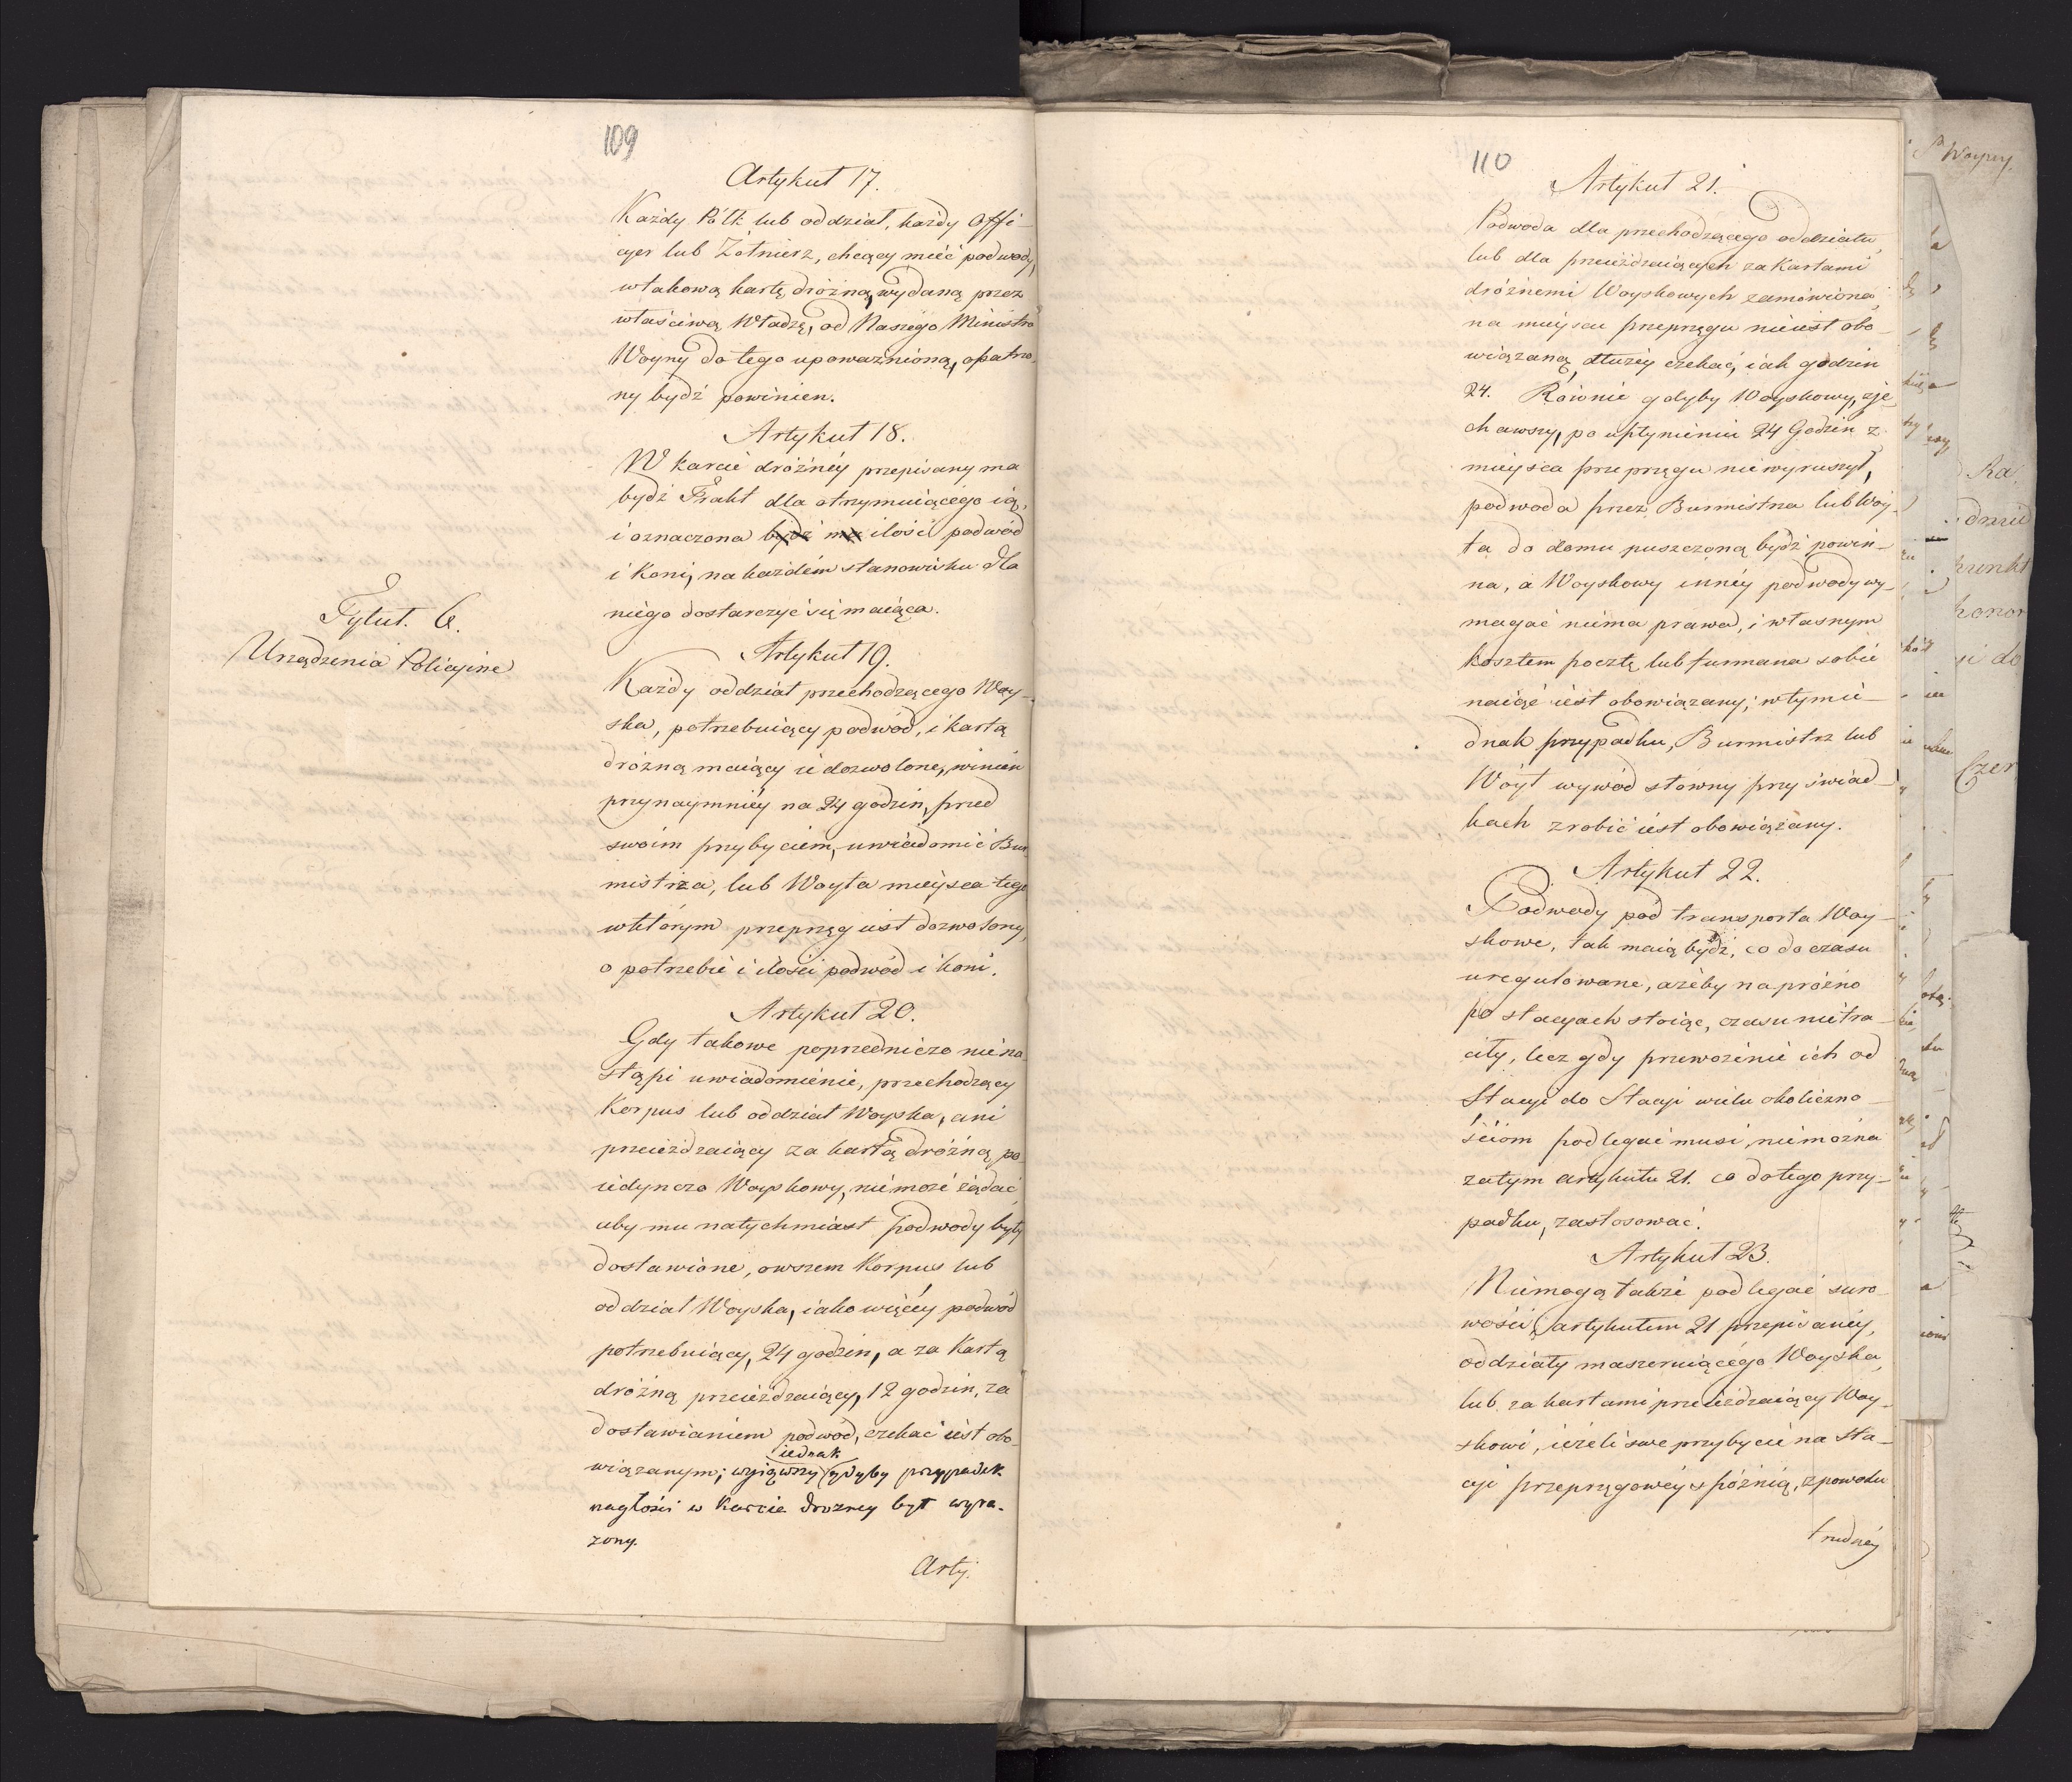 109
Artykuł 17.
Każdy Półk lub oddział, każdy Offi-
cyer lub Żołnierz, chcący mieć podwody,
w takową kartę dróżną, wydaną przez
właściwą Władzę, od Naszego Ministra
Woyny do tego upoważnioną, opatrzo-
ny bydź powinien.
Artykuł 18.
W karcie dróżnéy przepisany ma
bydź Trakt dla otrzymuiącego ią,
i oznaczona bydź ma ilość podwód
i koni, na każdém stanowisku dla
niego dostarczyć się maiąca.
Tytuł. 6.
Urządzenia Policyine
Artykuł 19.
Każdy oddział przechodzącego Woy-
ska, potrzebuiący podwód, i kartą
dróżną maiący ie dozwolone, winien
przynaymniéy na 24 godzin, przed
swoim przybyciem, uwiadomić Bur-
mistrza, lub Woyta mieysca tego
w którym przeprząg iest dozwolony,
o potrzebie i ilości podwód i koni.
Artykuł 20.
Gdy takowe poprzedniczo nie na-
stąpi uwiadomienie, przechodzący
Korpus lub oddział Woyska, ani
przeieżdzaiący za kartą dróżną, po-
iedynczo Woyskowy, nie może żądać
aby mu natychmiast podwody były
dostawione, owszem Korpus lub
oddział Woyska, iako więcéy podwód
potrzebuiący, 24 godzin, a za Kartą
dróżną przeieżdzaiący, 12 godzin, za
dostawianiem podwód, czekać iest obo-
iednak
wiązanym; wyiąwszy gdyby przypadek
nagłości w Karcie drożney był wyra-
żony.
Arty.
110
Artykuł 21.
Podwoda dla przechodzącego oddziału,
lub dla przeieżdzaiących za Kartami
dróżnemi Woyskowych zamówiona,
na mieyscu przeprzęgu nie iest obo-
wiązaną, dłużéy czekać, iak godzin
24. Równie gdyby Woyskowy, zje-
chawszy, po upłynieniu 24 Godzin z
mieysca przeprzęgu nie wyruszył,
podwoda przez Burmistrza lub Woy-
ta do domu puszczoną bydź powin-
na, a Woyskowy innéy podwody wy-
magać niema prawa, i własnym
kosztem pocztę lub furmana sobie
naiąć iest obowiązany; w tym ie-
dnak przypadku, Burmistrz lub
Wóyt wywód słowny przy świad-
kach zrobić iest obowiązany.
Artykuł 22.
Podwody pod transporta Woy-
skowe, tak maią bydź, co do czasu
uregulowane, ażeby na próżno
po stacyach stoiąc, czasu nie tra-
ciły, lecz gdy przewożenie ich od
Stacyi do Stacyi wielu okoliczno-
ściom podlegać musi, nie można
zatym artykułu 21. co do tego przy-
padku, zastosować.
Artykuł 23.
Nie mogą także podlegać suro-
wości, artykułem 21 przepisanéy,
oddziały maszeruiącego Woyska,
lub za kartami przeieżdzaiący Woy-
skowi, ieżeli swe przybycie na Sta-
cyi przeprzęgowéy spóźnią, z powodu
trudnéy